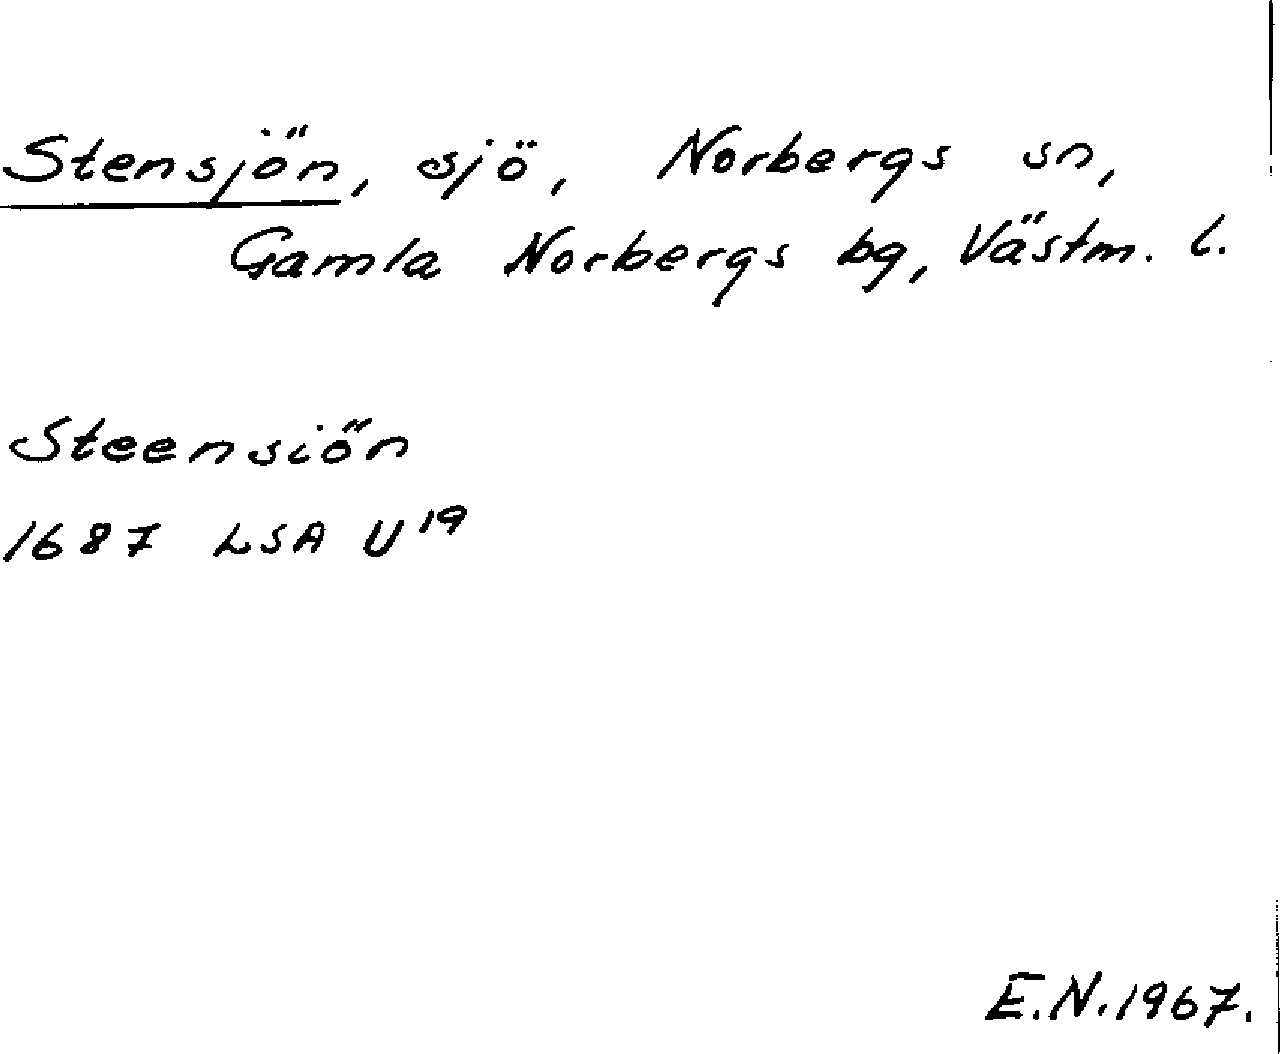 Stensjön, sjö, Norbergs sn,
Gamla Norbergs bg, Västm. l.
Steensiön
1687 LSA U¹⁹
E.N. 1967.